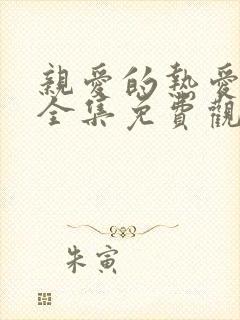 親愛的熱愛
全集免費觀
朱寅